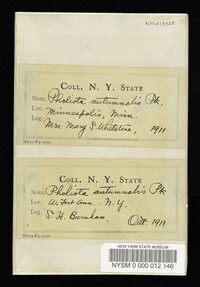 COLL. N. Y. STATE
Nom: Pholiota autumnalis Pk.
Loc: Minneapolis, Minn.
Leg. Mrs. Mary S. Whetstone, 1911
COLL. N. Y. STATE
Nom: Pholiota autumnalis Pk
Loc: W. Fort Ann. N.Y.
Leg. S. H. Burnham, Oct. 1911
NEW YORK STATE MUSEUM
NYSM 0 000 012 146